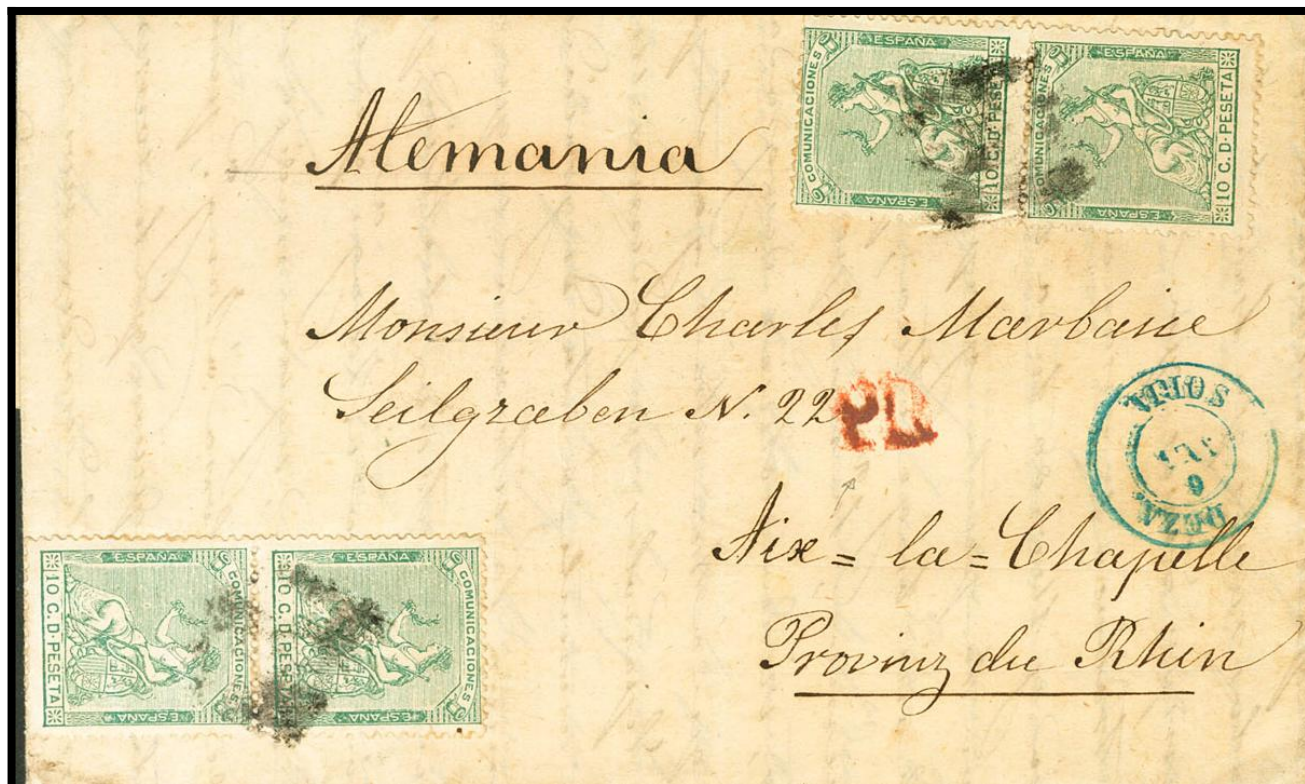 Alemania
ESPAÑA
COMUNICACIONES
10 C. D. PESETA
ESPAÑA
ESPAÑA
COMUNICACIONES
10 C. D. PESETA
ESPAÑA
Monsieur Charles Marbaise
Seilgraben N. 22
PD
SORIA
Aix = la = Chapelle
Provinz du Rhin
ESPAÑA
COMUNICACIONES
10 C. D. PESETA
ESPAÑA
ESPAÑA
COMUNICACIONES
10 C. D. PESETA
ESPAÑA